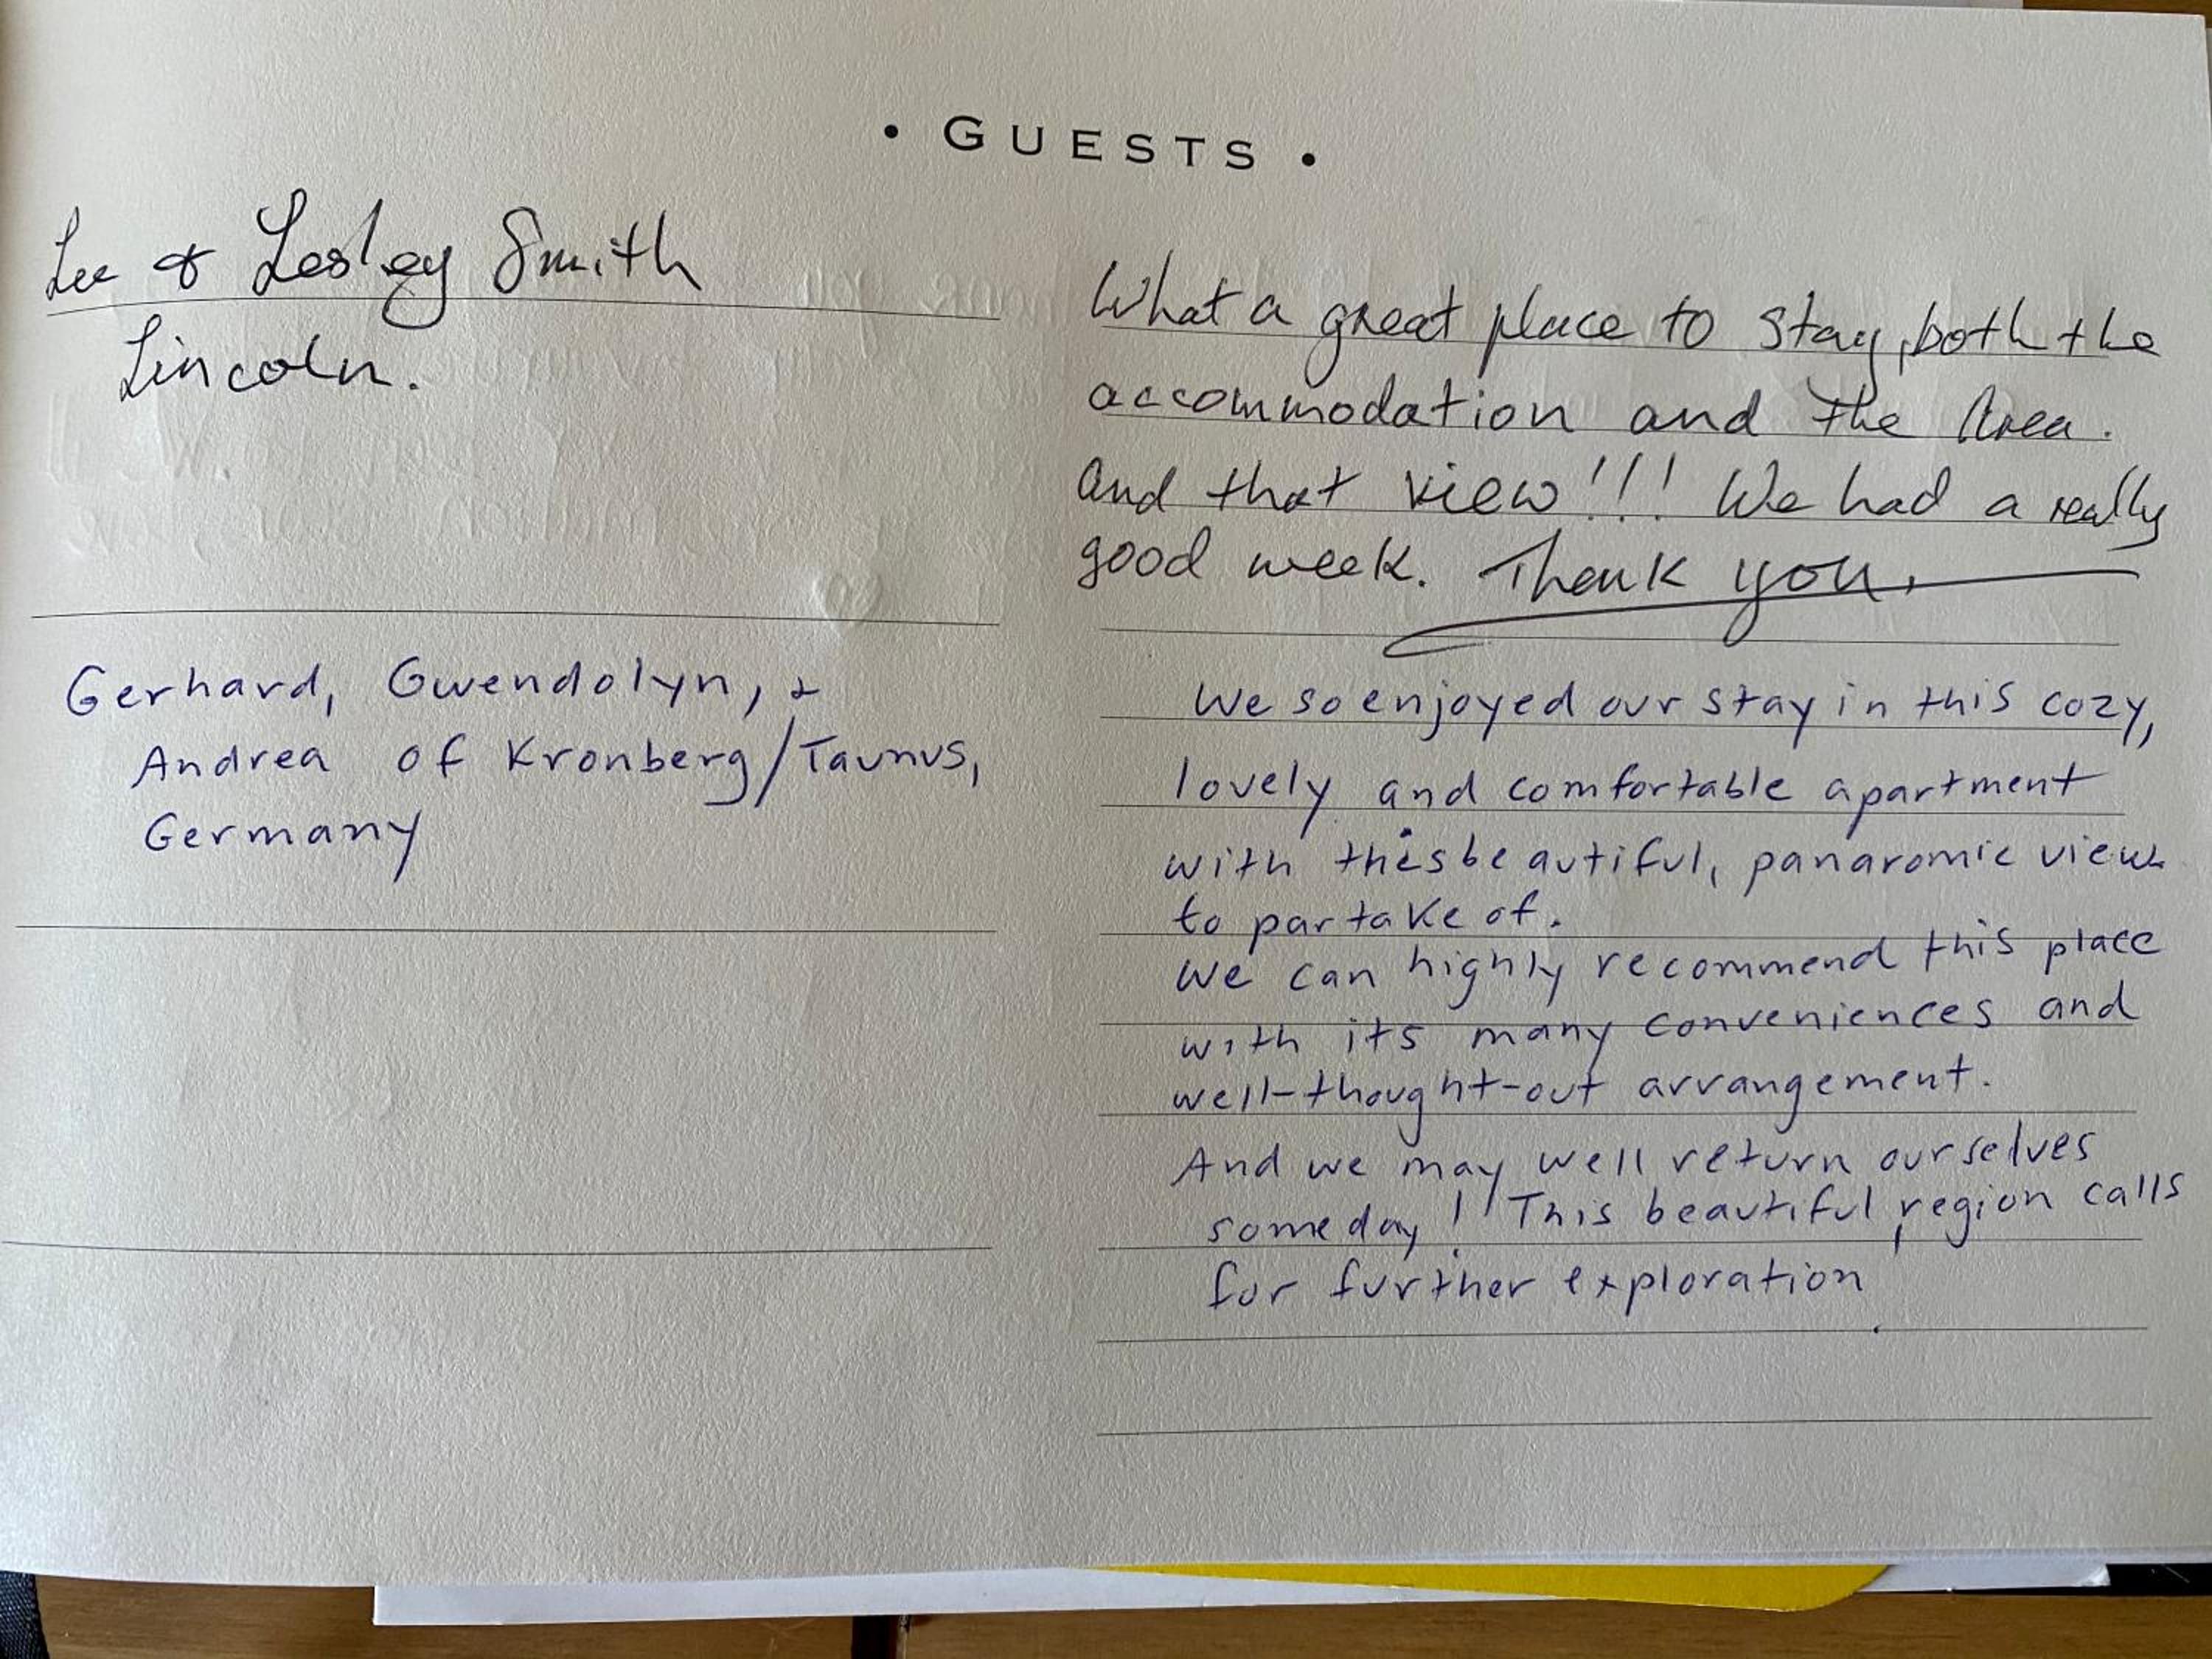 • GUESTS •
Lee & Lesley Smith
Lincoln.
What a great place to stay, both the
accommodation and the Area.
And that view!!! We had a really
good week. Thank you.
Gerhard, Gwendolyn, &
Andrea of Kronberg/Taunus,
Germany
We so enjoyed our stay in this cozy,
lovely and comfortable apartment
with this beautiful, panaromic view
to partake of.
We can highly recommend this place
with its many conveniences and
well-thought-out arrangement.
And we may well return ourselves
someday! This beautiful region calls
for further exploration.